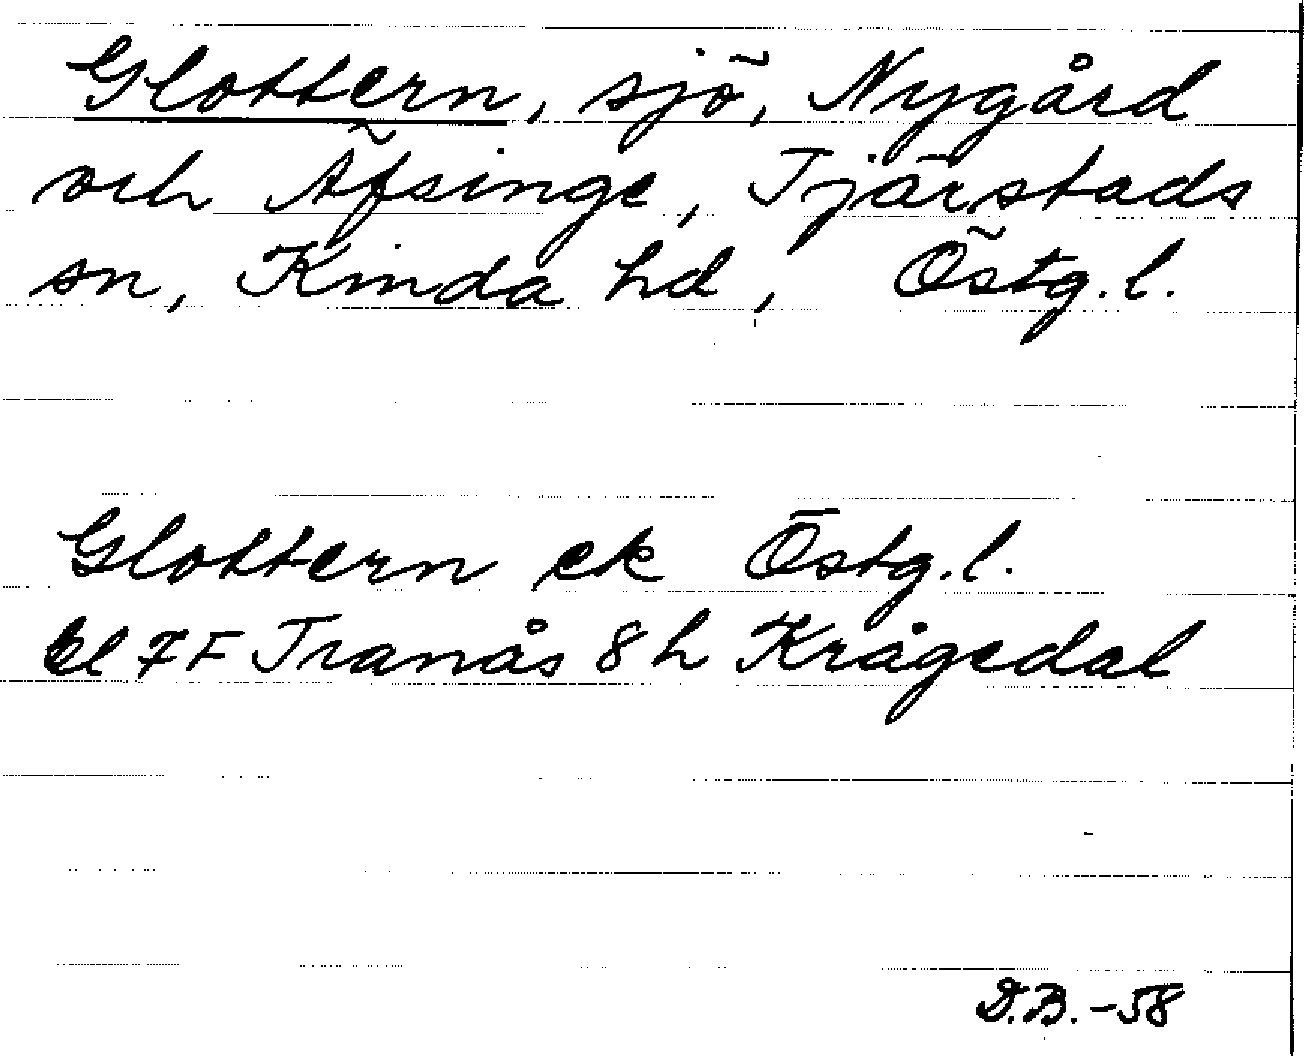 Glottern, sjö, Nygård
och Äfsinge, Tjärstads
sn, Kinda hd, Östg. l.
Glottern ek Östg. l.
bl 7F Tranås 8h Krågedal
D.B. -58